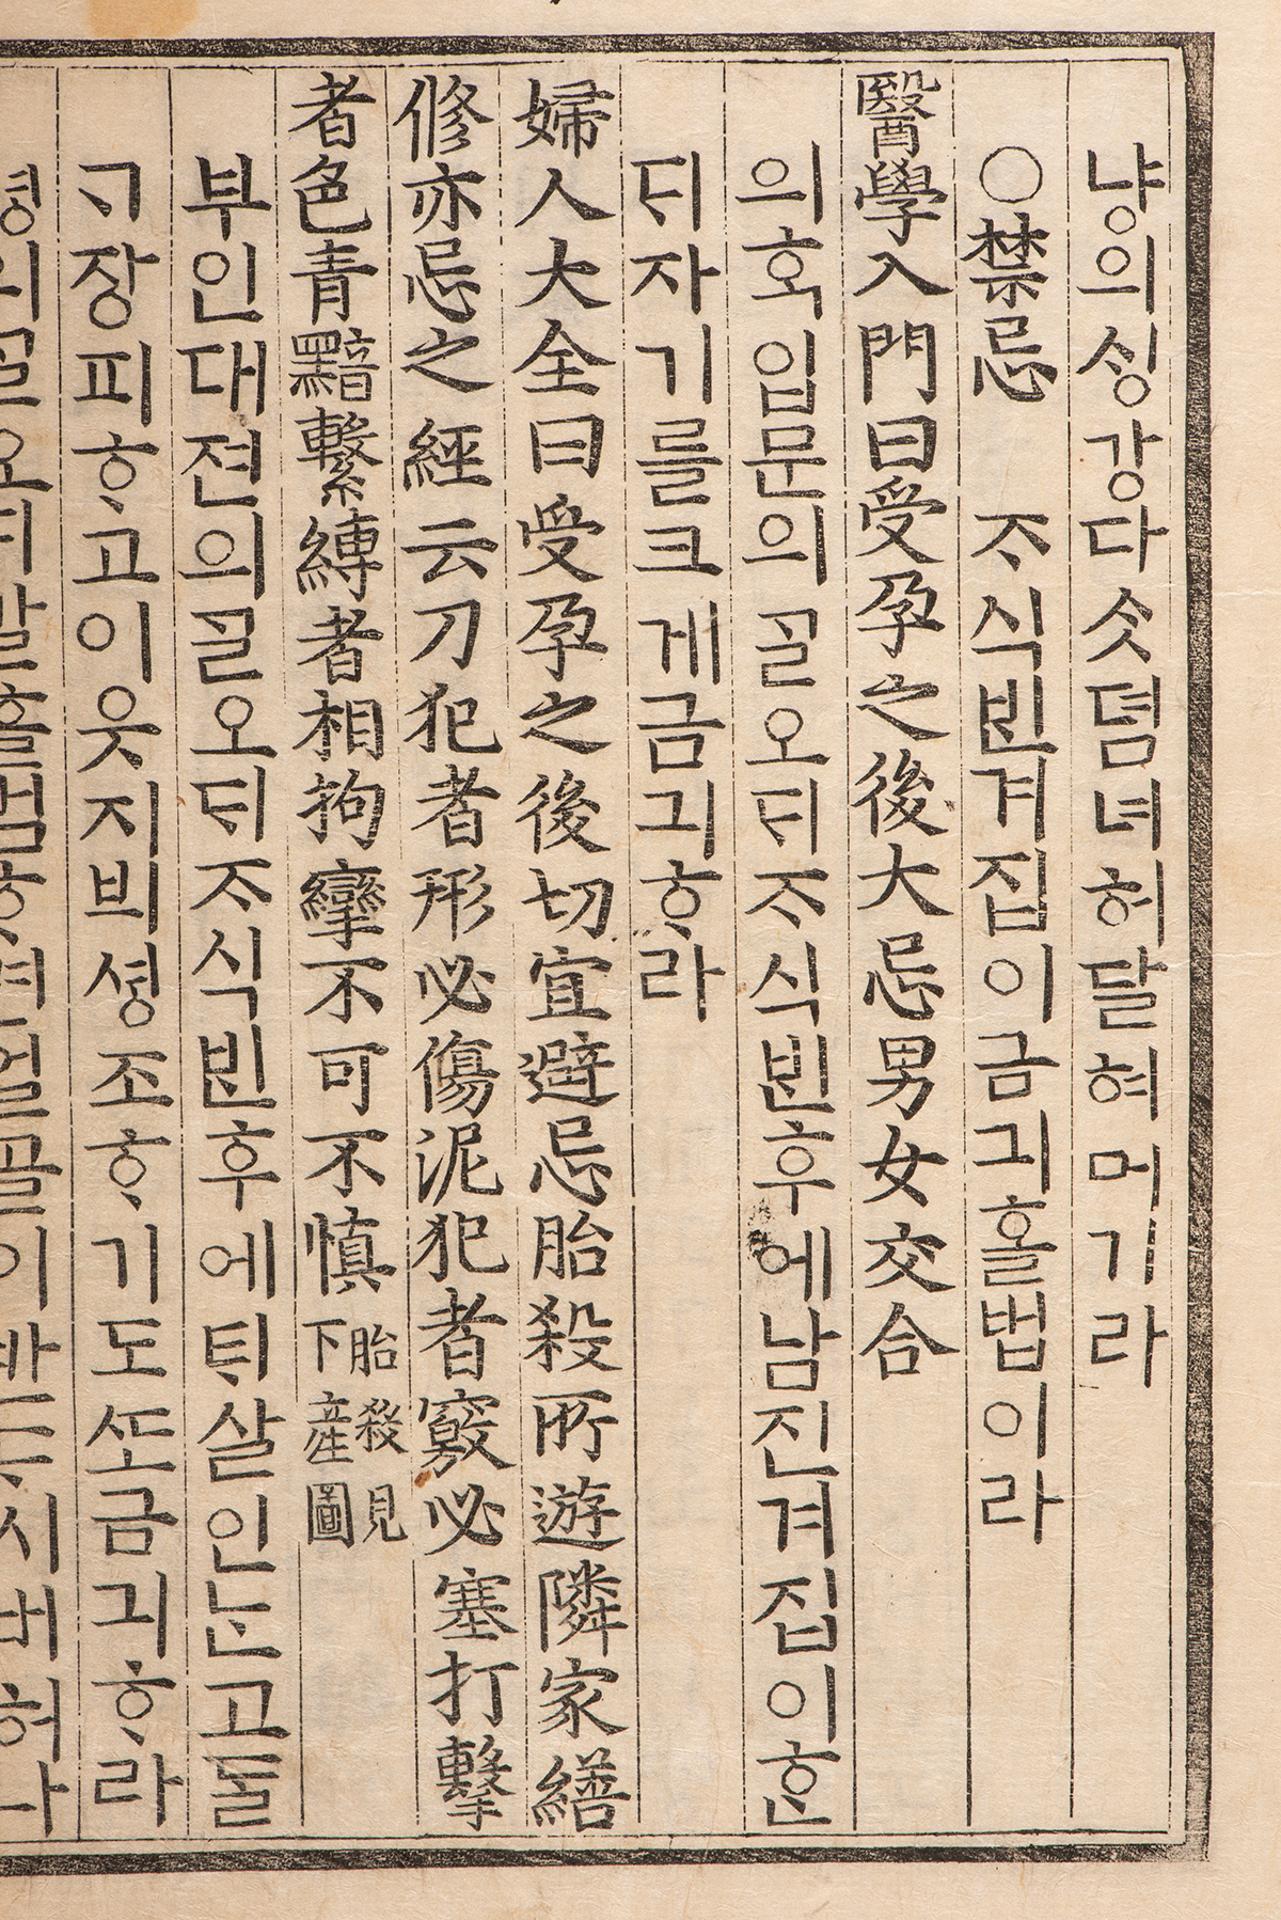 냥의ᄉᆡᆼ강다ᄉᆞᆺ뎜녀허달혀머기라
○禁忌 ᄌᆞ식ᄇᆡᆫ겨집이금긔홀법이라
醫學入門曰受孕之後大忌男女交合
의ᄒᆞᆨ입문의ᄀᆞᆯ오ᄃᆡᄌᆞ식ᄇᆡᆫ후에남진겨집이ᄒᆞᆫ
ᄃᆡ자기를크게금긔ᄒᆞ라
婦人大全曰受孕之後切宜避忌胎殺所遊隣家繕
修亦忌之經云刀犯者形必傷泥犯者竅必塞打擊
者色青黯繫縛者相拘攣不可不慎胎殺見下産圖
부인대젼의ᄀᆞᆯ오ᄃᆡᄌᆞ식ᄇᆡᆫ후에ᄐᆡ살인ᄂᆞᆫ고ᄃᆞᆯ
ᄀᆞ장피ᄒᆞ고이웃지븨셩조ᄒᆞ기도ᄯᅩ금긔ᄒᆞ라
ᄀᆞᆯ오ᄃᆡ갈홀범ᄒᆞ면얼골이반ᄃᆞ시